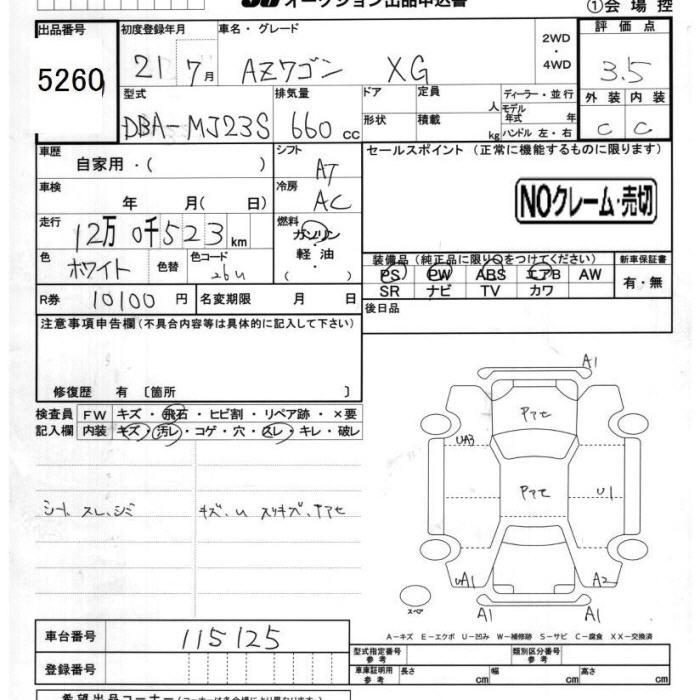 オークション出品申込書
①会場控
出品番号 初度登録年月 車名・グレード 2WD・4WD 評価点
5260 21 7月 AZワゴン XG 3.5
型式 排気量 ドア 定員 人 ディーラー・並行 外装 内装
モデル年式 年
DBA-MJ23S 660cc 形状 積載 kg ハンドル 左・右 C C
車歴 自家用・( ) シフト AT セールスポイント (正常に機能するものに限ります)
車検 年 月( 日) 冷房 AC
NOクレーム・売切
走行 12万0千523km 燃料 ガソリン・軽油・( )
色 ホワイト 色替 色コード 26U
装備品(純正品に限り○をつけてください) 新車保証書
PS PW ABS エアB AW 有・無
SR ナビ TV カワ
R券 10100円 名変期限 月 日 後日品
注意事項申告欄(不具合内容等は具体的に記入して下さい)
修復歴 有 〔箇所 〕
検査員 FW キズ・飛石・ヒビ割・リペア跡・×要
記入欄 内装 キズ・汚レ・コゲ・穴・スレ・キレ・破レ
シート スレ、シミ キズ、U スリキズ、ヤアセ
A1
ヤアセ
UA3
ヤアセ U1
UA1 A2
スペア A1 A1
A−キズ E−エクボ U−凹み W−補修跡 S−サビ C−腐食 XX−交換済
車台番号 115125
型式指定番号 参考 類別区分番号 参考
登録番号 車庫証明用 参考 長さ cm 幅 cm 高さ cm
希望出品コーナー(コーナーは各会場により異なります)